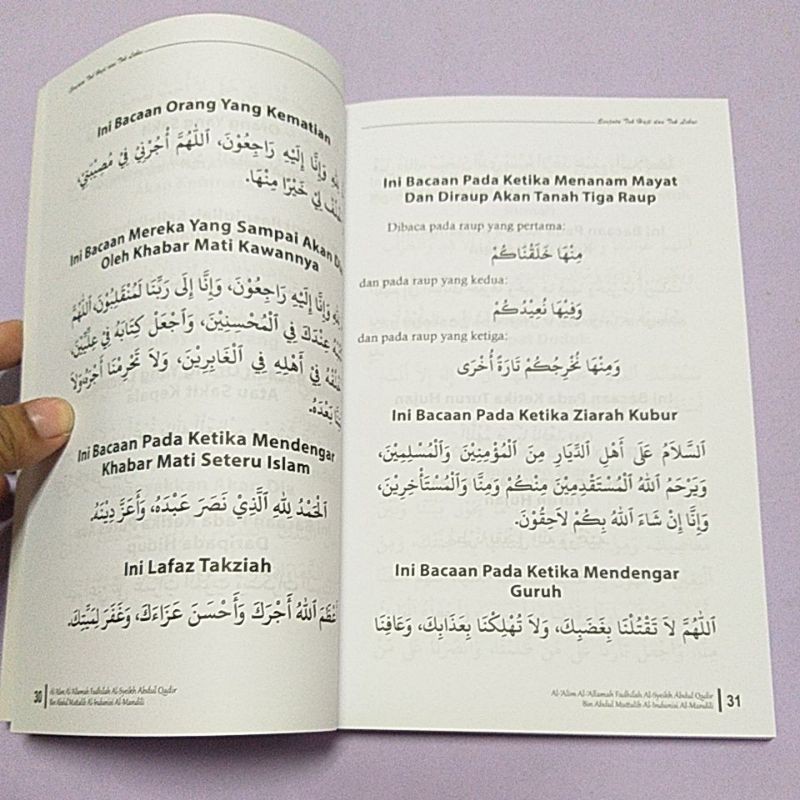 Ini Bacaan Orang Yang Kematian
وَإِنَّا إِلَيْهِ رَاجِعُوْنَ، اَللّٰهُمَّ أْجُرْنِيْ فِيْ مُصِيْبَتِيْ،
لِيْ خَيْرًا مِنْهَا.
Ini Bacaan Mereka Yang Sampai Akan
Oleh Khabar Mati Kawannya
وَإِنَّا إِلَيْهِ رَاجِعُوْنَ، وَإِنَّا إِلَى رَبِّنَا لَمُنْقَلِبُوْنَ، اَللّٰهُمَّ
عِنْدَكَ فِي الْمُحْسِنِيْنَ، وَاجْعَلْ كِتَابَهُ فِيْ عِلِّيِّيْنَ،
فِيْ أَهْلِهِ فِي الْغَابِرِيْنَ، وَلاَ تَحْرِمْنَا أَجْرَهُ وَلاَ
بَعْدَهُ.
Ini Bacaan Pada Ketika Mendengar
Khabar Mati Seteru Islam
اَلْحَمْدُ لِلّٰهِ الَّذِيْ نَصَرَ عَبْدَهُ، وَأَعَزَّ دِيْنَهُ.
Ini Lafaz Takziah
أَعْظَمَ اللهُ أَجْرَكَ وَأَحْسَنَ عَزَاءَكَ، وَغَفَرَ لِمَيِّتِكَ.
30
Al-'Alim Al-'Allamah Fadhilah Al-Syeikh Abdul Qadir
Bin Abdul Muttalib Al-Indunisi Al-Mandili
Senjata Tok Haji dan Tok Lebai
Ini Bacaan Pada Ketika Menanam Mayat
Dan Diraup Akan Tanah Tiga Raup
Dibaca pada raup yang pertama:
مِنْهَا خَلَقْنَاكُمْ
dan pada raup yang kedua:
وَفِيْهَا نُعِيْدُكُمْ
dan pada raup yang ketiga:
وَمِنْهَا نُخْرِجُكُمْ تَارَةً أُخْرَى
Ini Bacaan Pada Ketika Ziarah Kubur
اَلسَّلاَمُ عَلَى أَهْلِ الدِّيَارِ مِنَ الْمُؤْمِنِيْنَ وَالْمُسْلِمِيْنَ،
وَيَرْحَمُ اللهُ الْمُسْتَقْدِمِيْنَ مِنْكُمْ وَمِنَّا وَالْمُسْتَأْخِرِيْنَ،
وَإِنَّا إِنْ شَاءَ اللهُ بِكُمْ لاَحِقُوْنَ.
Ini Bacaan Pada Ketika Mendengar
Guruh
اَللّٰهُمَّ لاَ تَقْتُلْنَا بِغَضَبِكَ، وَلاَ تُهْلِكْنَا بِعَذَابِكَ، وَعَافِنَا
Al-'Alim Al-'Allamah Fadhilah Al-Syeikh Abdul Qadir
Bin Abdul Muttalib Al-Indunisi Al-Mandili
31